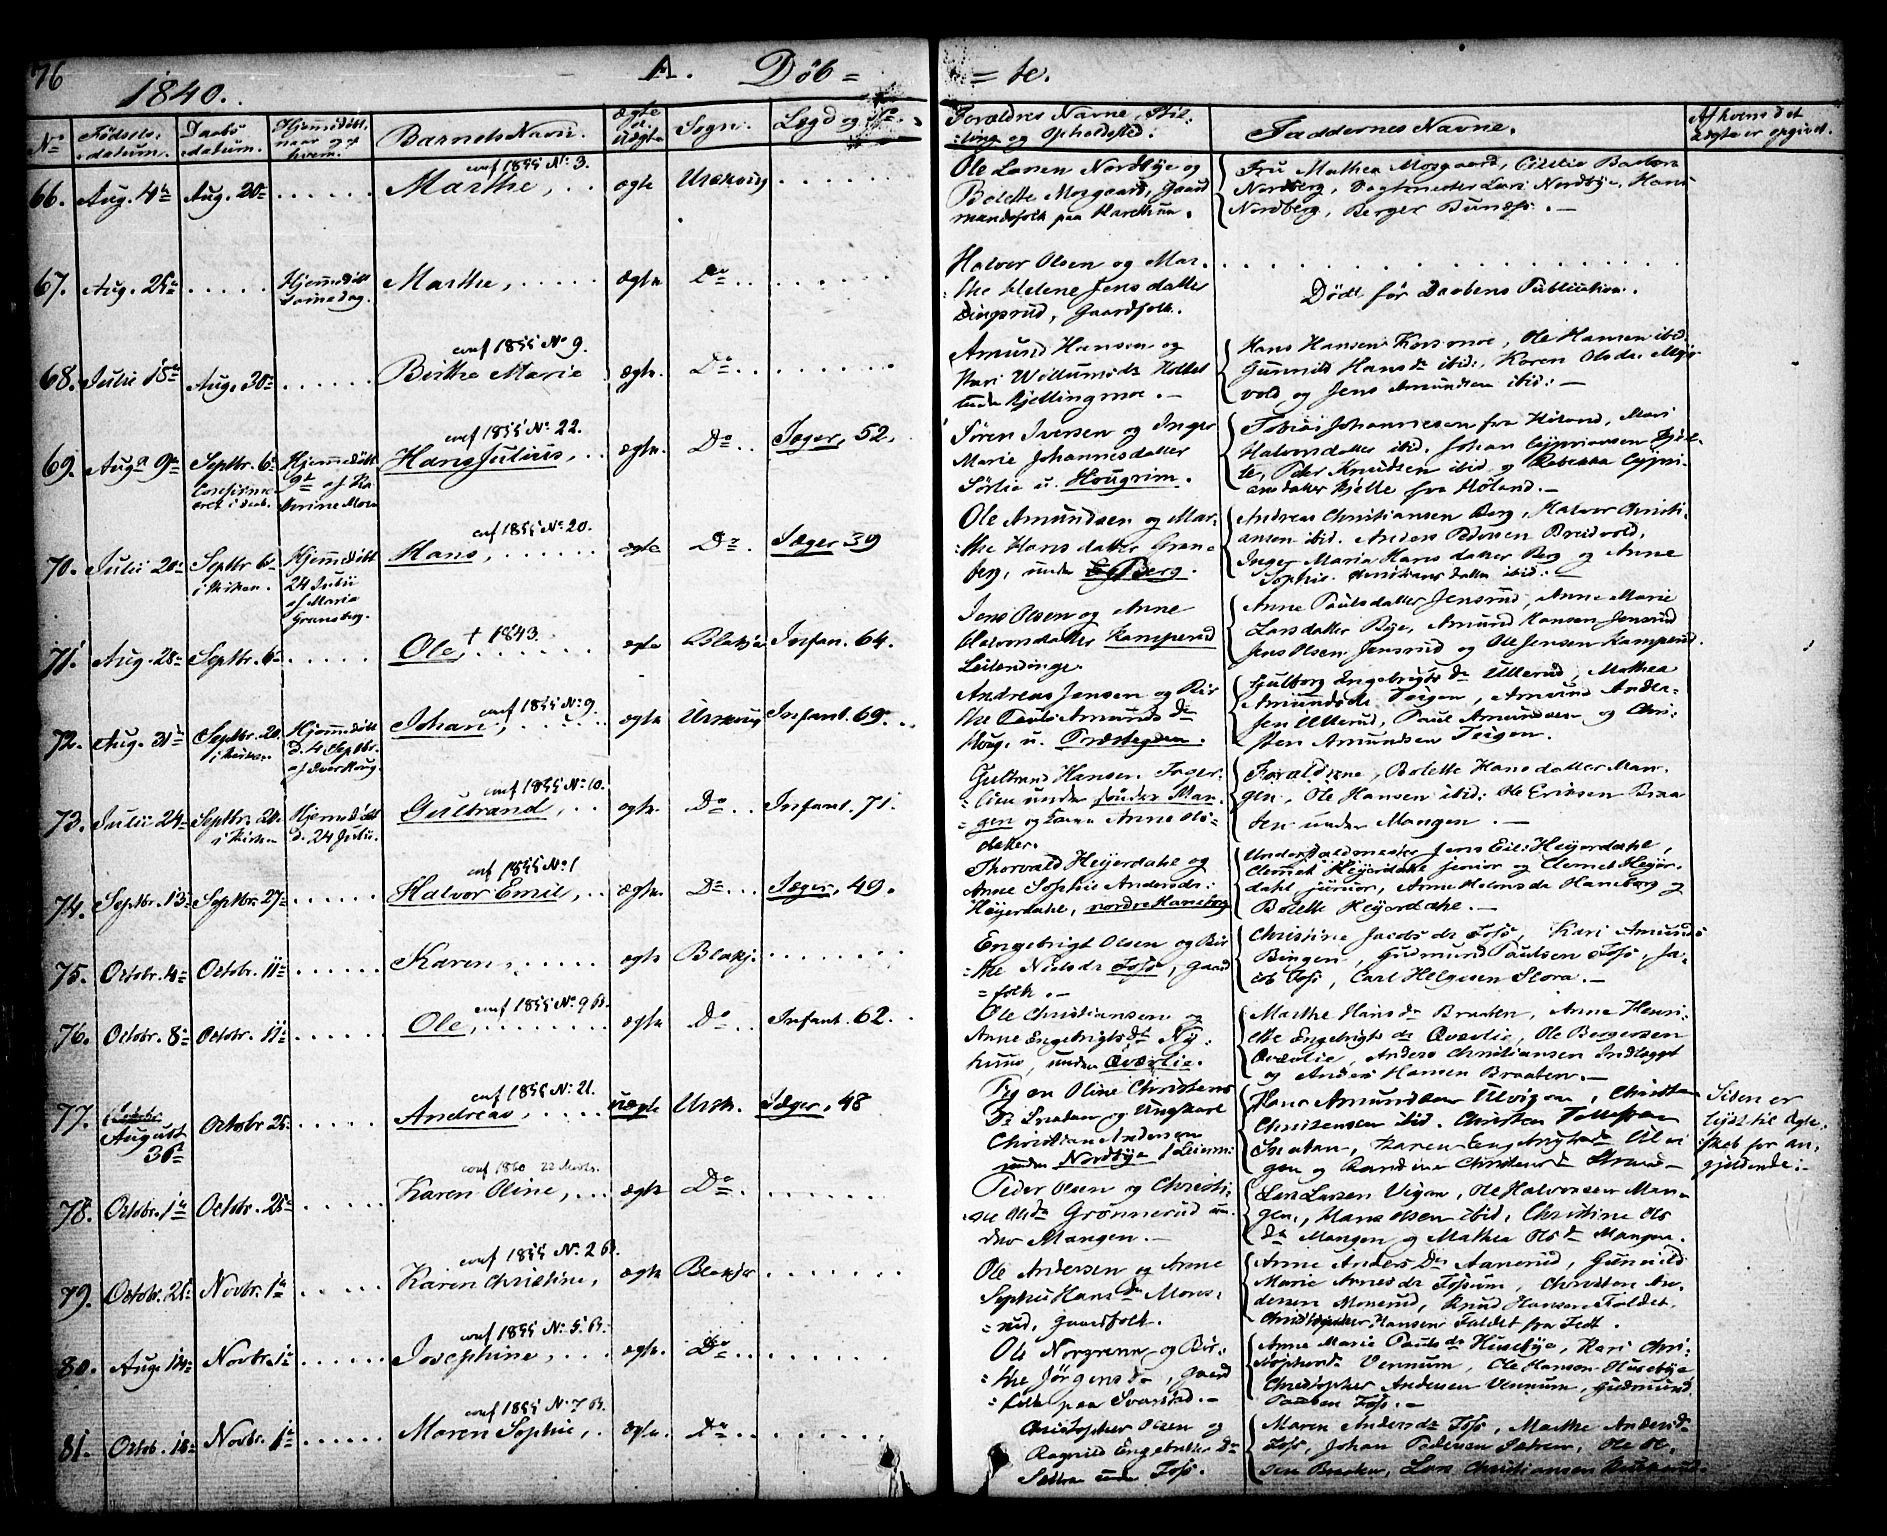 76
1840.
A. Døb= =te.
No Fødsels-datum. Daabs datum. Hjemmedøbt, naar og af hvem. Barnets Navn. ægte ell. uægte Sogn. Lægd og No. Forældres Navne, Stilling og Opholdsted. Faddernes Navne. Af hvem det ægte er opgivet.
66. Aug. 4de Aug. 20de
conf 1855 No. 3.
Marthe, ægte Urskoug
Ole Larsen Nordbye og
Bolette Morgaard, Gaard
mandsfolk paa
Fru Mathea Morgaard,
Nordberg, Lars Nordbye, Hans
Nordberg, Berger Bunæss. —
67. Aug. 25de
Hjemmedøbt
samme dag.
Marthe, ægte Do
Halvor Olsen og Mar-
the Helene Jensdatter
Dingsrud, Gaardfolk.
Død før Daabens Publication.
68. Julii 18de Aug. 30te
conf 1855 No 9.
Birthe Marie ægte. Do
Amund Hansen og
Kari
under Kjellingmoe. —
Hans Hansen Korsmoe, Ole Hansen ibid.
Gunnild Hansda ibid., Karen Olsda
vold og Jens Amundsen ibid: —
69. Aug. 9de Septbr. 6te
Hjemmedøbt
conf 1855 No. 22.
Hans Julius, ægte. Do Jæger, 52.
Søren Iversen og Inger
Marie Johannesdatter
Sørlie u. Hougrim.
Tobias Johannesen fra Høland, Mari
Halvorsdatter ibid. Johan Cypriansen
Peder Knudsen ibid. og Rebekka Cypri-
ansdatter Kjelle fra Høland. —
70. Julii 20de Septbr 6te
i Kirken.
Hjemmedøbt
24 Julii
af Maria
Gransberg.
conf 1855 No. 20.
Hans, ægte Do Jæger 39
Ole Amundsen og Mar-
the Hansdatter Gran-
berg, under Berg.
Andreas Christiansen Berg, Halvor Christi-
ansen ibid. Anders Pedersen Breidvold,
Inger Maria Hansdatter Berg og Anne
Sophie Christiansdatter ibid: —
71. Aug. 28de Septbr. 6te
† 1843.
Ole, ægte Blakjer Infan. 64.
Jens Olsen og Anne
Halvorsdatter Kamperud
Leilændinge.
Anne Paulsdatter Jensrud, Anne Marie
Larsdatter Bye, Amund Hansen Jensrud
Jens Olsen Jensrud og Ole Jensen Kamperud.
72. Aug. 31te Septbr. 20
i Kirken
Hjemmedøbt
d. 4 Septbr.
af Iver Houg.
conf 1855 No. 9.
Johan, ægte Urskoug Infant. 69.
Andreas Jensen og Bir-
the Amundsda
Houg, u. Præstegden.
Gulborg Engebrigtsda Ullerud, Mathea
Amundsda Teigen, Amund Ander-
sen Ullerud, Paul Amundsen og Chri-
sten Amundsen Teigen.
73. Julii 24de Septbr. 20de
i Kirken
Hjemmedøbt
d. 24 Julii.
conf 1855 No. 10.
Gulbrand, ægte Do Infant. 71.
Gulbrand Hansen Fager-
lien under søndre Man-
gen og Anne Ols-
datter.
Forældrene, Bolette Hansdatter Man-
gen, Ole Hansen ibid. Ole Eriksen Braa
ten under Mangen. —
74. Septbr. 13de Septbr. 27de
conf 1855 No. 1
Halvor Emil, ægte. Do Jæger, 49.
Thorvald Heyerdahl og
Anne Sophie Andersda.
Heyerdahl, nordre Haneborg
Jens Emil Heyerdahl,
Clemet Heyerdahl senior og Clemet Heyer-
dahl junior, Anne Haneborg og
Bolette Heyerdahl. —
75. Octobr. 4de Octobr. 11te
Karen, ægte Blakj.
Engebrigt Olsen og Bir-
the Nielsda Foss, Gaard
folk. —
Christine Jacobsda Foss, Kari Amunds
Bingen, Gudmund Paulsen Foss, Ja-
cob Foss, Carl Helgesen Stora. —
76. Octobr. 8de Octobr. 11te
conf 1855 No. 9 B.
Ole, ægte Do Infant. 62.
Ole Christiansen og
Anne Engebrigtsda Ny-
huus, under Qværlie.
Marthe Hansda Braaten, Anne Henri-
ette Engebrigtsda Qværlie, Ole Bergersen
Qværlie, Anders Christiansen Indlægget
og Anders Hansen Braaten. —
77. August
30te
Octobr 25de
conf 1855 No. 21.
Andreas, uægte Ursk. Jæger, 48
Pigen Oline Christens
Da og Ungkarl
Christian Andersen
under Nordbye
Hans Amundsen, Christen
Christensen ibid. Christen Tollefsen
Karen Engebrigtsda
gen og Christensda
Siden er
lyst til ægte-
skab for an-
gjældende. —
78. Octobr. 1te Octobr. 25de
conf 1860 22 Novbr.
Karen Oline, ægte Do
Peder Olsen og Christi-
ne Olsda Grønnerud un-
der Mangen. —
Lars Larsen Vigen, Ole Halvorsen Man-
gen, Hans Olsen ibid, Christine Ols
da Mangen og Mathea Olsda Mangen.
79. Octobr. 21de Novbr. 1te
conf 1855 No. 2 B.
Karen Christine, ægte Blakjer
Ole Andersen og Anne
Sophie Hansda Mone-
rud, Gaardfolk.
Anne Andersda Aanerud, Gunnild
Marie Arnesda Fossum, Christen An-
dersen Monerud, Knud Hansen Faldet,
Christopher Hansen Faldet fra Fedt.
80. Aug. Novbr. 1te
conf 1855 No. 5. B.
Josephine, ægte. Do
Ole Norgrenn og Bir-
the Jørgensda, Gaard
folk paa Svarstad. —
Anne Marie Paulsda Husebye, Kari Chri-
stophersda Vennum, Ole Hansen Husebye
Christopher Andersen Vennum, Gudmund
Paulsen Foss. —
81. Octob. Novbr. 1te
conf 1855 No. 7 B.
Maren Sophie, ægte. Do
Christopher Olsen og
Ragnild Engebrettsda
Sætra under Foss.
Maren Andersda Foss, Marthe Andersd
Foss, Johan Pedersen Sætren, Ole Ol-
sen Braaten, Lars Christiansen